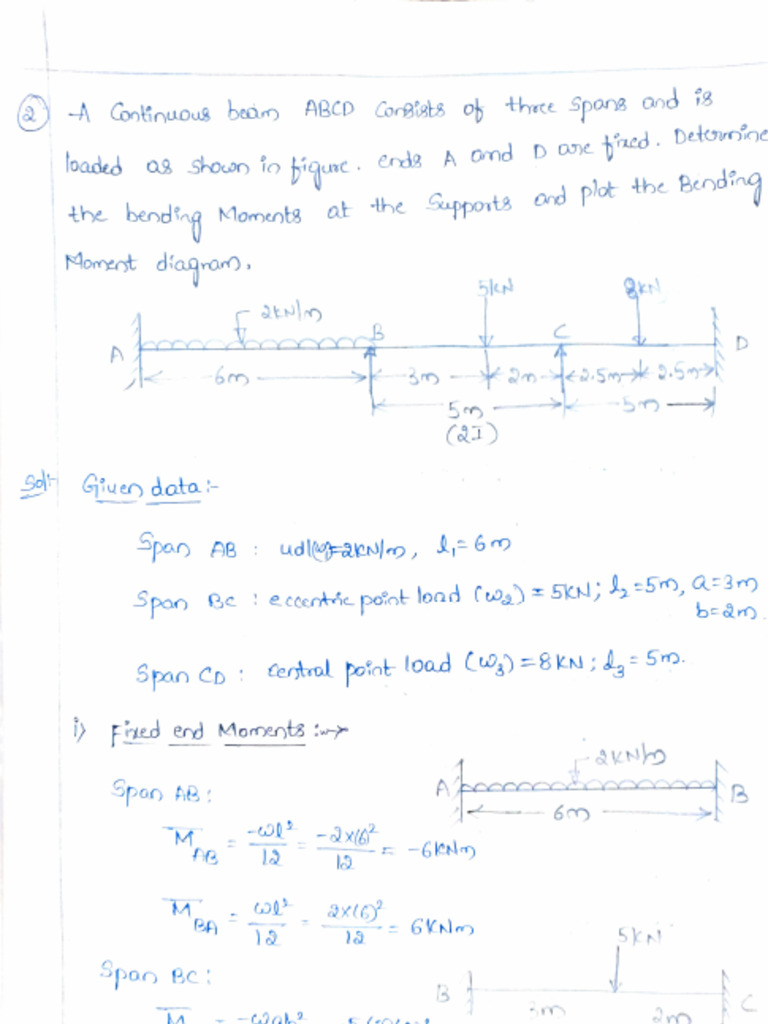 2 A Continuous beam ABCD Consists of three spans and is
loaded as shown in figure. ends A and D are fixed. Determine
the bending Moments at the supports and plot the Bending
Moment diagram.
5kN 8kN
2kN/m B C
A D
6m 3m 2m 2.5m 2.5m
5m 5m
(2I)
Sol:- Given data:-
Span AB : udl(w)=2kN/m, l₁=6m
Span BC : eccentric point load (w₂) = 5kN; l₂=5m, a=3m
b=2m.
Span CD : central point load (w₃) = 8kN; l₃=5m.
i) Fixed end Moments :→
2kN/m
Span AB: A B
6m
M̅AB = -wl²/12 = -2×(6)²/12 = -6kNm
M̅BA = wl²/12 = 2×(6)²/12 = 6kNm
5kN
Span BC: B C
3m 2m
M̅ = -wab²